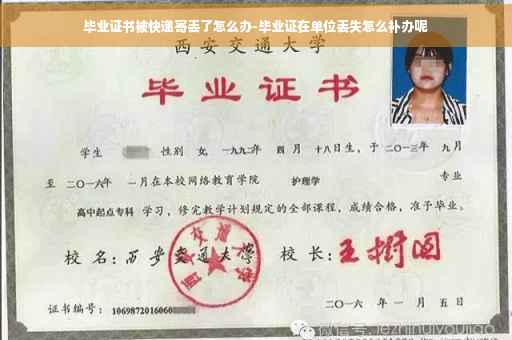 毕业证书被快递寄丢了怎么办-毕业证在单位丢失怎么补办呢
西安交通大学
毕业证书
学生 性别 女, 一九九二年 四月 十八日生, 于二〇一三年 九月
至 二〇一六年 一月在本校网络教育学院 护理学 专业
高中起点专科 学习, 修完教学计划规定的全部课程, 成绩合格, 准予毕业。
校名: 西安交通大学 校长: 王树国
证书编号: 1069872016060 二〇一六年 一月 五日
微信号: jezhihuiyoujiao